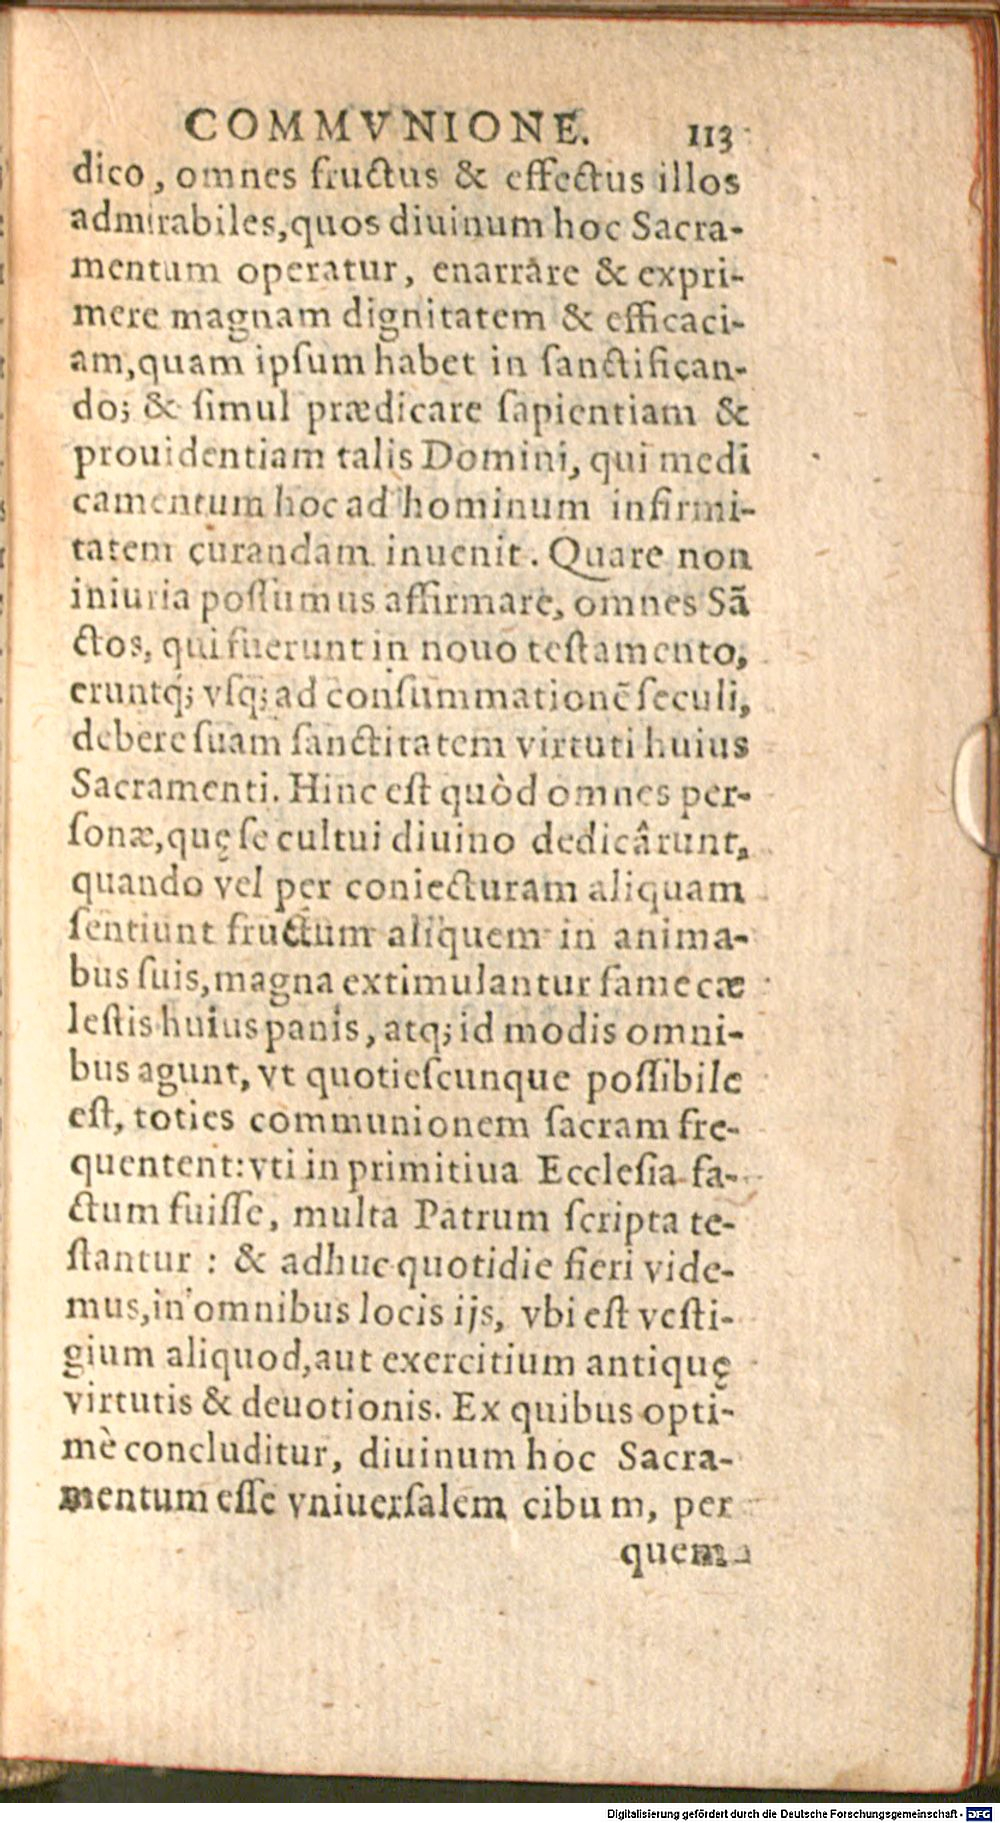 COMMVNIONE. 113
dico, omnes fructus & effectus illos
admirabiles, quos diuinum hoc Sacra-
mentum operatur, enarrare & expri-
mere magnam dignitatem & efficaci-
am, quam ipsum habet in sanctifican-
do; & simul prædicare sapientiam &
prouidentiam talis Domini, qui medi
camentum hoc ad hominum infirmi-
tatem curandam inuenit. Quare non
iniuria possumus affirmare, omnes Sã
ctos, qui fuerunt in nouo testamento,
eruntq; vsq; ad consummationẽ seculi,
debere suam sanctitatem virtuti huius
Sacramenti. Hinc est quòd omnes per-
sonæ, quę se cultui diuino dedicârunt,
quando vel per coniecturam aliquam
sentiunt fructum aliquem in anima-
bus suis, magna extimulantur fame cæ
lestis huius panis, atq; id modis omni-
bus agunt, vt quotiescunque possibile
est, toties communionem sacram fre-
quentent: vti in primitiua Ecclesia fa-
ctum fuisse, multa Patrum scripta te-
stantur: & adhuc quotidie fieri vide-
mus, in omnibus locis ijs, vbi est vesti-
gium aliquod, aut exercitium antiquę
virtutis & deuotionis. Ex quibus opti-
mè concluditur, diuinum hoc Sacra-
mentum esse vniuersalem cibum, per
quem
Digitalisierung gefördert durch die Deutsche Forschungsgemeinschaft - DFG